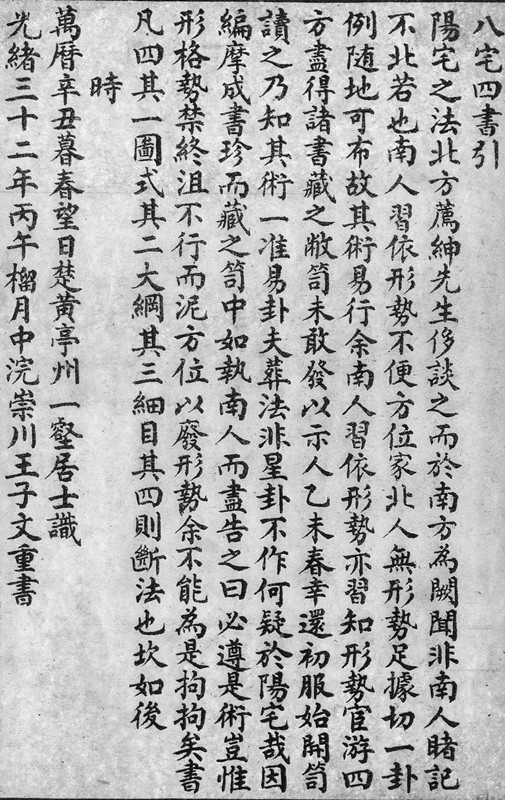 八宅四書引
陽宅之法北方薦紳先生侈談之而於南方為闕聞非南人睹記
不北若也南人習依形勢不便方位家北人無形勢足據切一卦
例随地可布故其術易行余南人習依形勢亦習知形勢官游四
方盡得諸書藏之敝笥未敢發以示人乙未春幸還初服始開笥
讀之乃知其術一准易卦夫葬法非星卦不作何疑於陽宅哉因
編摩成書珍而藏之笥中如執南人而盡告之曰必遵是術豈惟
形格勢禁終沮不行而泥方位以廢形勢余不能為是拘拘矣書
凡四其一圖式其二大綱其三細目其四則斷法也坎如後
時
萬曆辛丑暮春望日楚黃亭州一壑居士識
光緒三十二年丙午榴月中浣崇川王子文重書